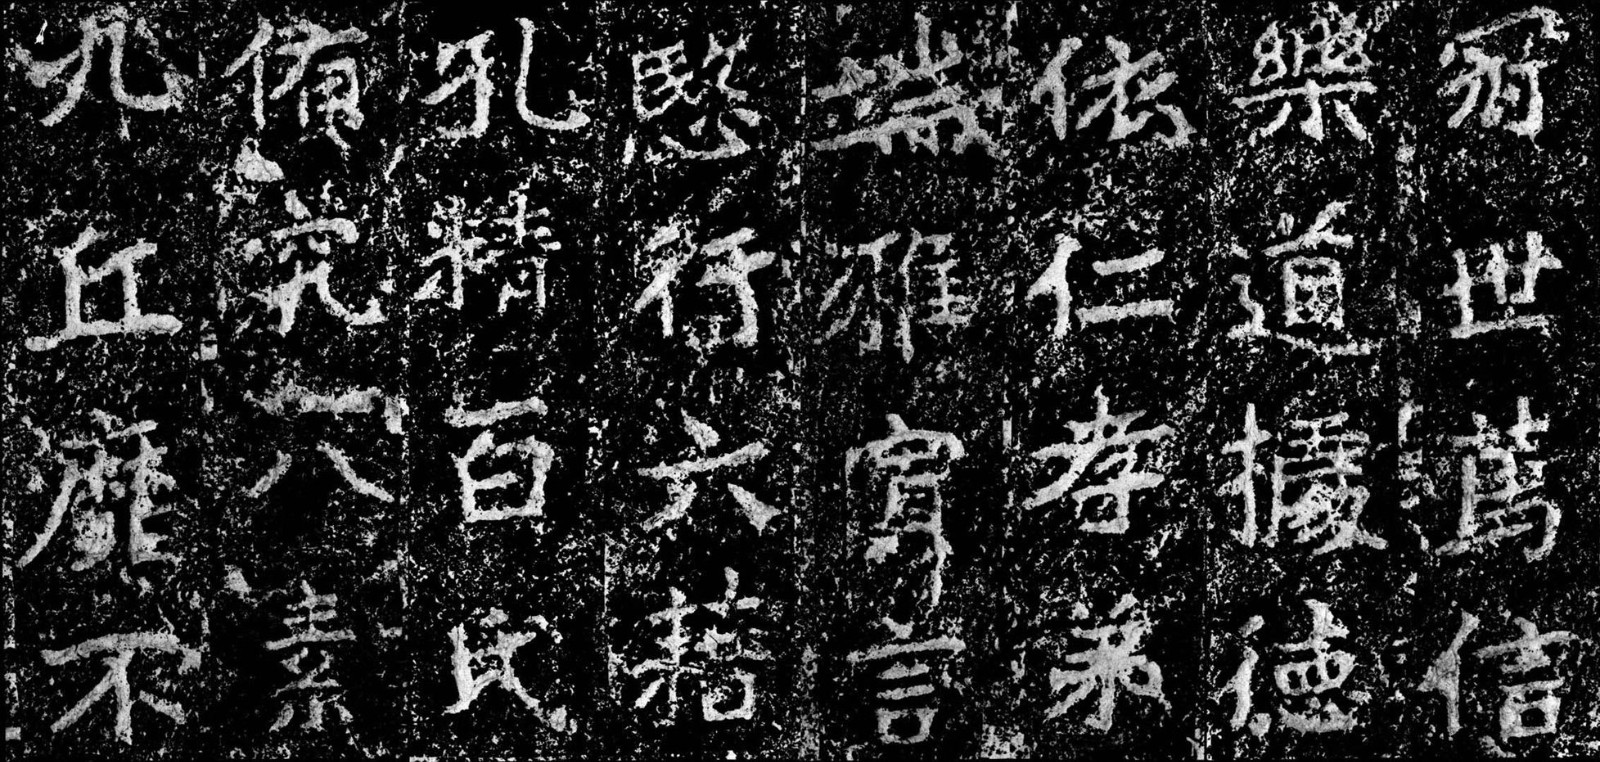 世篤信
樂道據德
依仁孝弟
端雅寡言
慜行六籍
孔精百氏
備究八素
九丘靡不